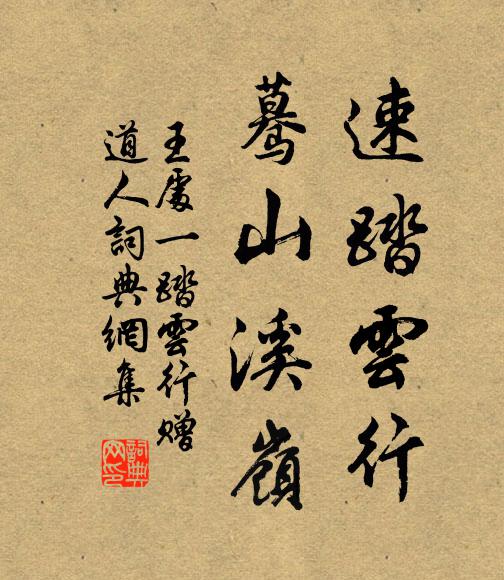 速踏雲行
驀山溪嶺
王處一踏雲行贈
道人詞典網集
詞典
网印